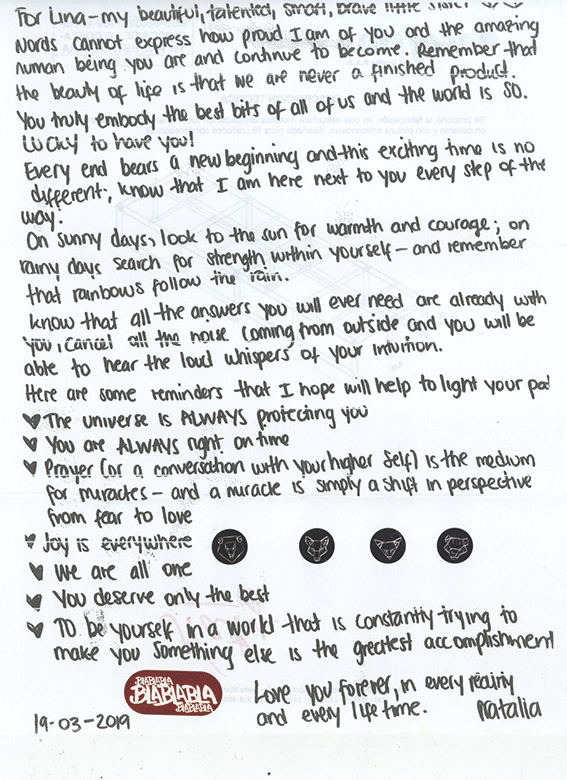 For Lina - my beautiful, talented, smart, brave little sister
Words cannot express how proud I am of you and the amazing
human being you are and continue to become. Remember that
the beauty of life is that we are never a finished product.
You truly embody the best bits of all of us and the world is SO.
Lucky to have you!
Every end bears a new beginning and this exciting time is no
different; know that I am here next to you every step of the
way.
On sunny days, look to the sun for warmth and courage; on
rainy days search for strength within yourself - and remember
that rainbows follow the rain.
Know that all the answers you will ever need are already with
you, cancel all the noise coming from outside and you will be
able to hear the loud whispers of your intuition.
Here are some reminders that I hope will help to light your pa
♥ The universe is ALWAYS protecting you
♥ You are ALWAYS right on time
♥ Prayer (or a conversation with your higher Self) is the medium
for miracles - and a miracle is simply a shift in perspective
from fear to love
♥ Joy is everywhere
♥ We are all one
♥ You deserve only the best
♥ TO be yourself in a world that is constantly trying to
make you something else is the greatest accomplishment
BLABLABLA
BLABLABLA
BLABLABLA
Love you forever, in every reality
and every life time. Natalia
19-03-2019